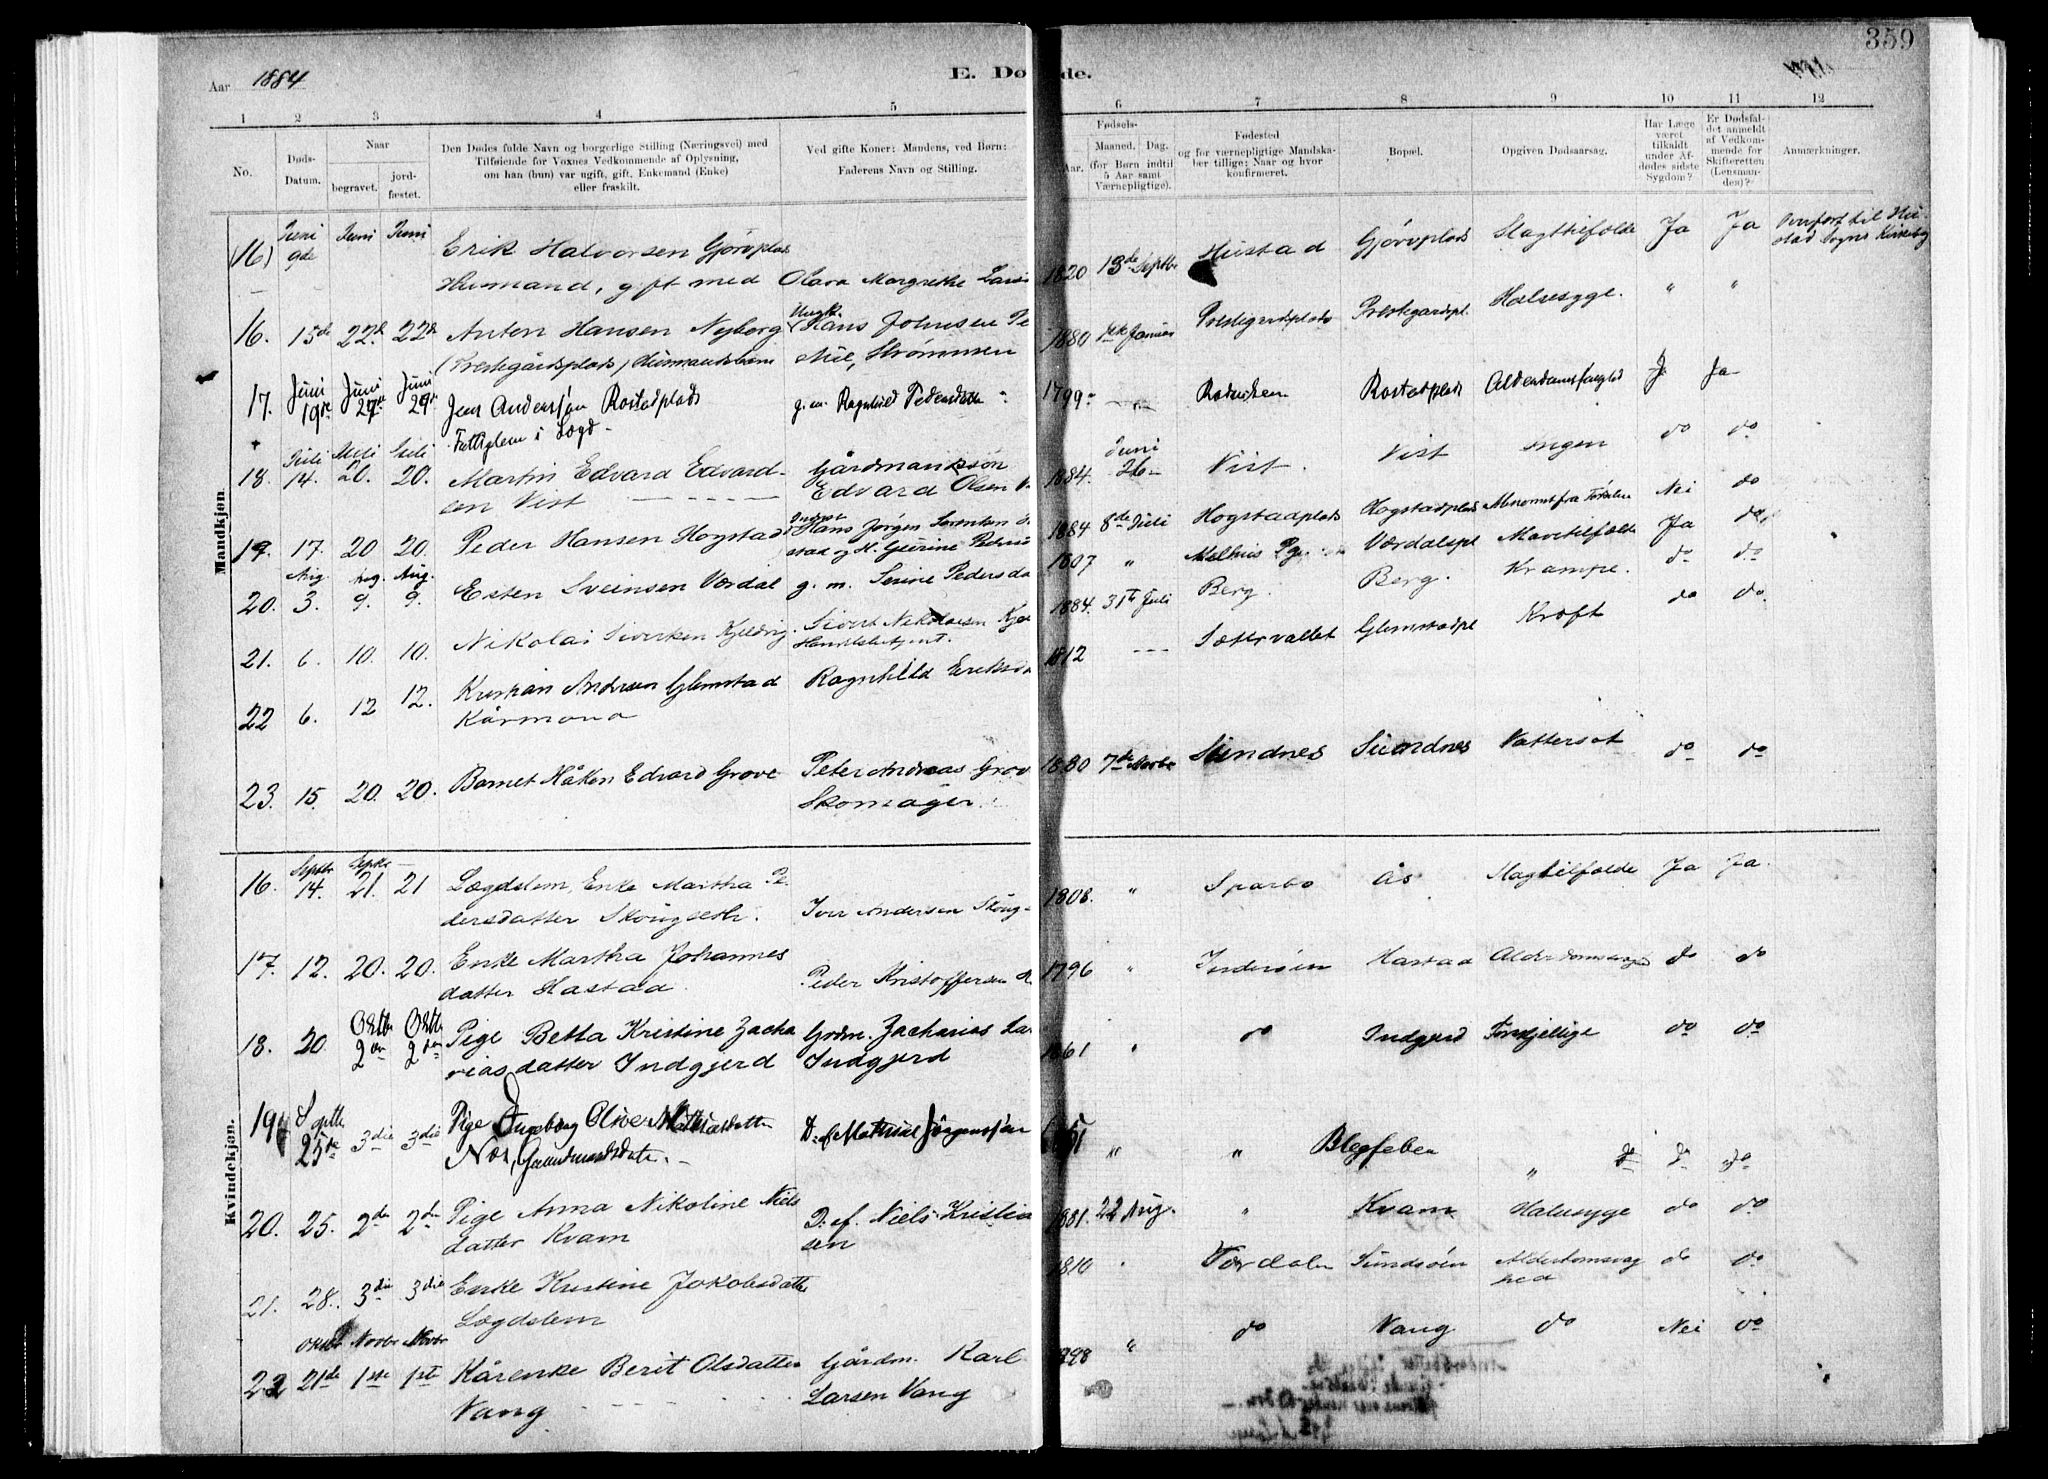 359
Aar 1884
E. Dø de.
1 2 3 4 5 6 7 8 9 10 11 12
No.
Døds-Datum.
Naar
begravet.
jord-fæstet.
Den Dødes fulde Navn og borgerlige Stilling (Næringsvei) med
Tilføiende for Voxnes Vedkommende af Oplysning,
om han (hun) var ugift, gift, Enkemand (Enke)
eller fraskilt.
Ved gifte Koner: Mandens, ved Børn:
Faderens Navn og Stilling.
Fødsels-
Aar.
Maaned. Dag.
(for Børn indtil
5 Aar samt
Værnepligtige).
Fødested
og for værnepligtige Mandska-
ber tillige: Naar og hvor
konfirmeret.
Bopæl.
Opgiven Dødsaarsag.
Har Læge
været
tilkaldt
under Af-
dødes sidste
Sygdom?
Er Dødsfal-
det anmeldt
af Vedkom-
mende for
Skifteretten
(Lensman-
den)?
Anmærkninger.
Mandkjøn.
(16) Juni 9de Juni Juni Erik Halvorsen Gjørvplads 1820 13de Septbr Hustad Gjørvplads Slagtilfælde Ja Ja Overført til Hu-
Husmand, gift med Olava Margrethe stad Sogns Kirkebog
16. 15de 22de 22de Anton Hansen Nyborg Hans Johnsen 1880 Januar Prestegardplads Prestegardpl. Halssyge. " "
(Prestegårdsplads) Husmandsbarn Strømmen
17. Juni 19de Juni 29de Juni 29de Jens Andersøn Rostadplads g. m. Ragnhild Pedersdatter 1799 " Rostadplads Alderdomssvaghed Ja Ja
Fattiglem i Lægd
18. Juli 14. Juli 20. Juli 20. Martin Edvard Edvard- Gårdmandssøn 1884. Juni 26 Vist. Vist Ingen do do
sen Vist Edvard Olsen
19. 17. 20 20. Peder Hansen Hogstad Hans Jørgen Sørensen 1884 8de Juli Hogstadplads Hogstadplads Nei do
stad og H. Gurine
20. Aug 3. Aug. 9. Aug. 9. Esten Sveinsen Værdal g. m. Serine Pedersda 1807 " Melhus Pg. Værdalspl Mavetilfælde Ja do
21. 6. 10. 10. Nikolai Sivertsen Kjelvig. Sivert Nikolaisen 1884. 31te Juli Berg. Berg. Krampe. do do
Handelsbetjent.
22 6. 12 12. Kristian Andersen Glemstad Ragnhild Eriksda 1812 Sættervallet Glemstadpl Kræft do do.
Kårmand
23. 15. 20. 20. Barnet Håkon Edvard Grove Peter Andreas Grov 1880 7de Sundnes Sundnes Vattersot do do
Skomager.
Kvindekjøn.
16. Septbr 14. Septbr 21. 21 Lægdslem, Enke Martha Pe- 1808. " Sparbo Ås Slagtilfælde Ja Ja.
dersdatter Skougseth. Iver Andersen Skoug-
17. 12. 20. 20. Enke Martha Johannes 1796 " Inderøen Hastad do do
datter Hastad. Peder Kristoffersen
18. 20. Oktbr 2den Oktbr 2den Pige Betta Kristine Zacha Gdm. Zacharias La 1861 " do Indgjerd Forskjellige do do
riasdatter Indgjerd Indgjerd
19 Septbr 25de 3die 3die Pige Ingeborg Oline D. af Mathias Jørgensøn " " Blegfeber do do
Næs,
20. 25. 2den 2den Pige Anna Nikoline Niels D. af. Niels Kristia 1881. 22 Aug. " Kvam Halssyge do do
datter Kvam sen
21. 28. 3die 3die Enke Kristine Jakobsdatter 1810 " Værdalen Sundsøen Alderdomssvag do do
Lægdslem hed
22 Oktbr 21de Novbr 1ste Novbr 1ste Kårenke Berit Olsdatter Gårdm. Karl " do Vang do Nei do
Vang Larsen Vang